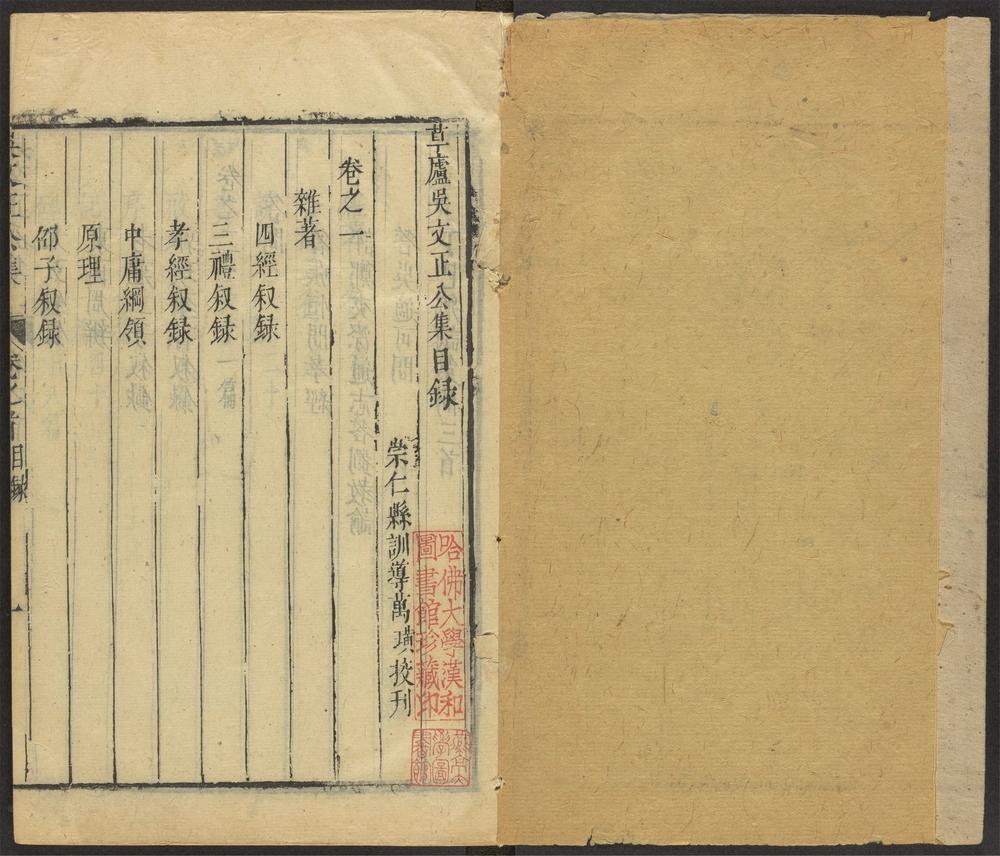 草廬吳文正公集目錄
崇仁縣訓導萬璜挍刊
卷之一
雜著
四經叙録
三禮叙録
孝經叙録
中庸綱領
原理
邵子叙録
卷之首目録
哈佛大學漢和
圖書館珍藏印